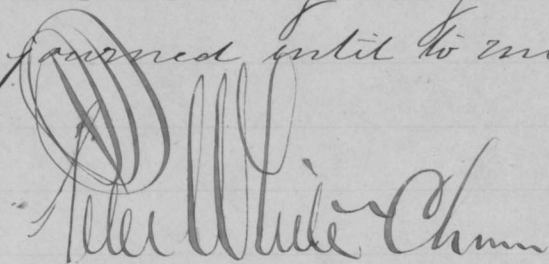 journed until to mo
Peter White Chmn